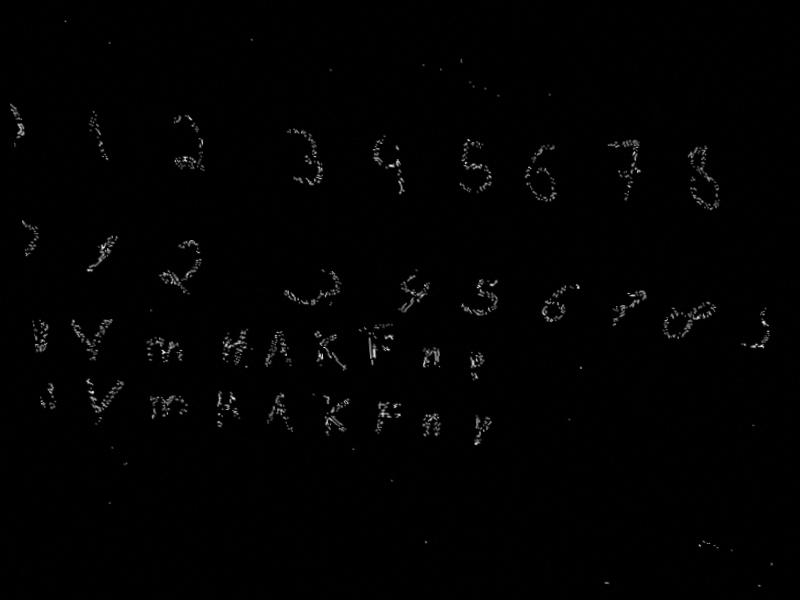 1 2 3 4 5 6 7 8
1 2 3 4 5 6 7 8
Y m H A K F n p
Y m H A K F n p